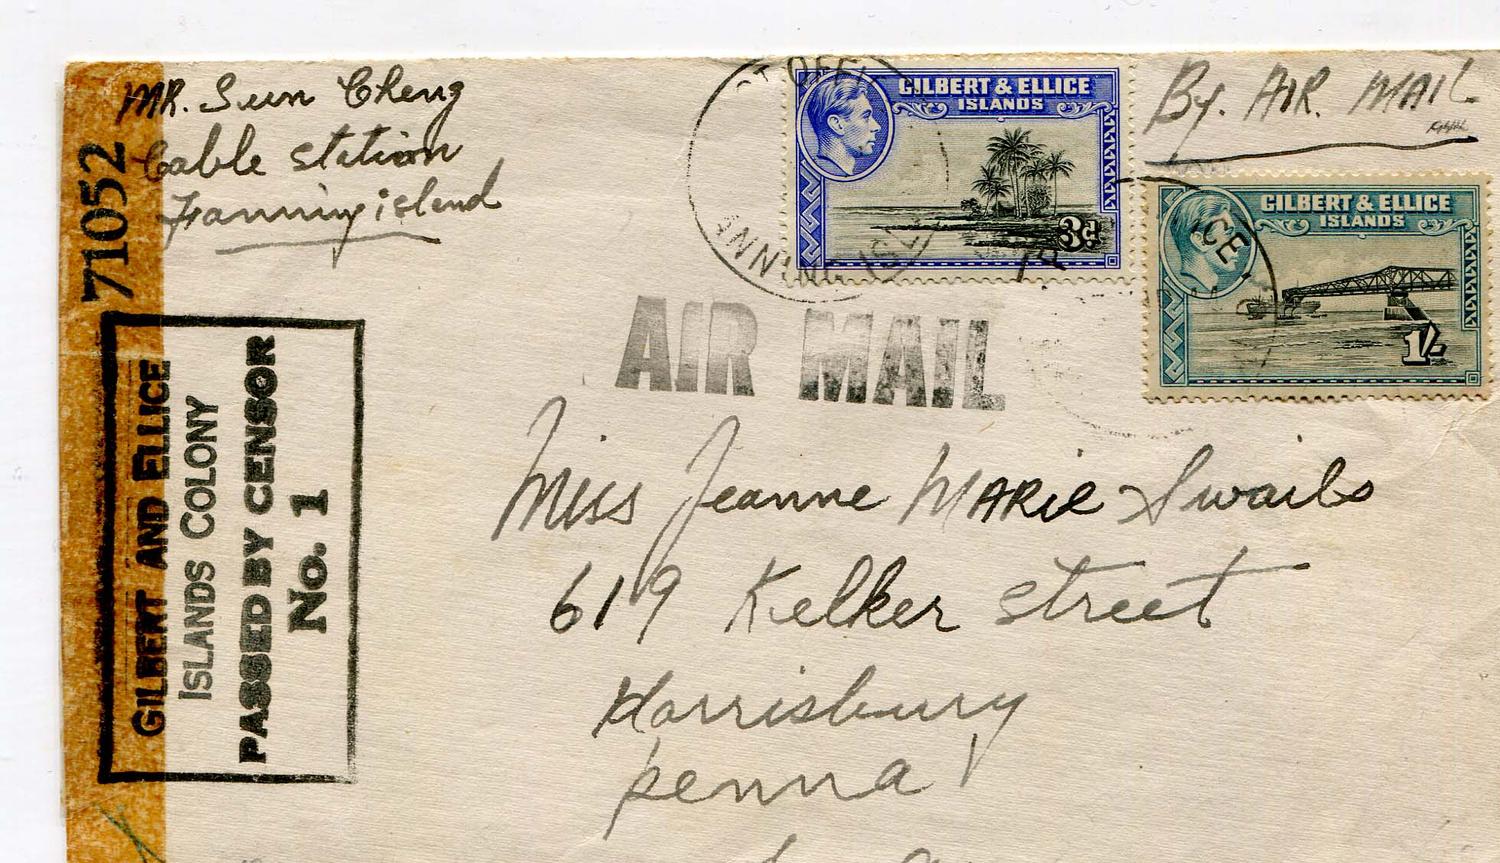 MR. Sun Cheng
Cable Station
Fanning island
71052
GILBERT AND ELLICE
ISLANDS COLONY
PASSED BY CENSOR
No. 1
GILBERT & ELLICE
ISLANDS
3d
By. AIR. MAIL
GILBERT & ELLICE
ISLANDS
1/-
AIR MAIL
Miss Jeanne MARIE Swails
619 Kelker Street
Harrisburg
penna